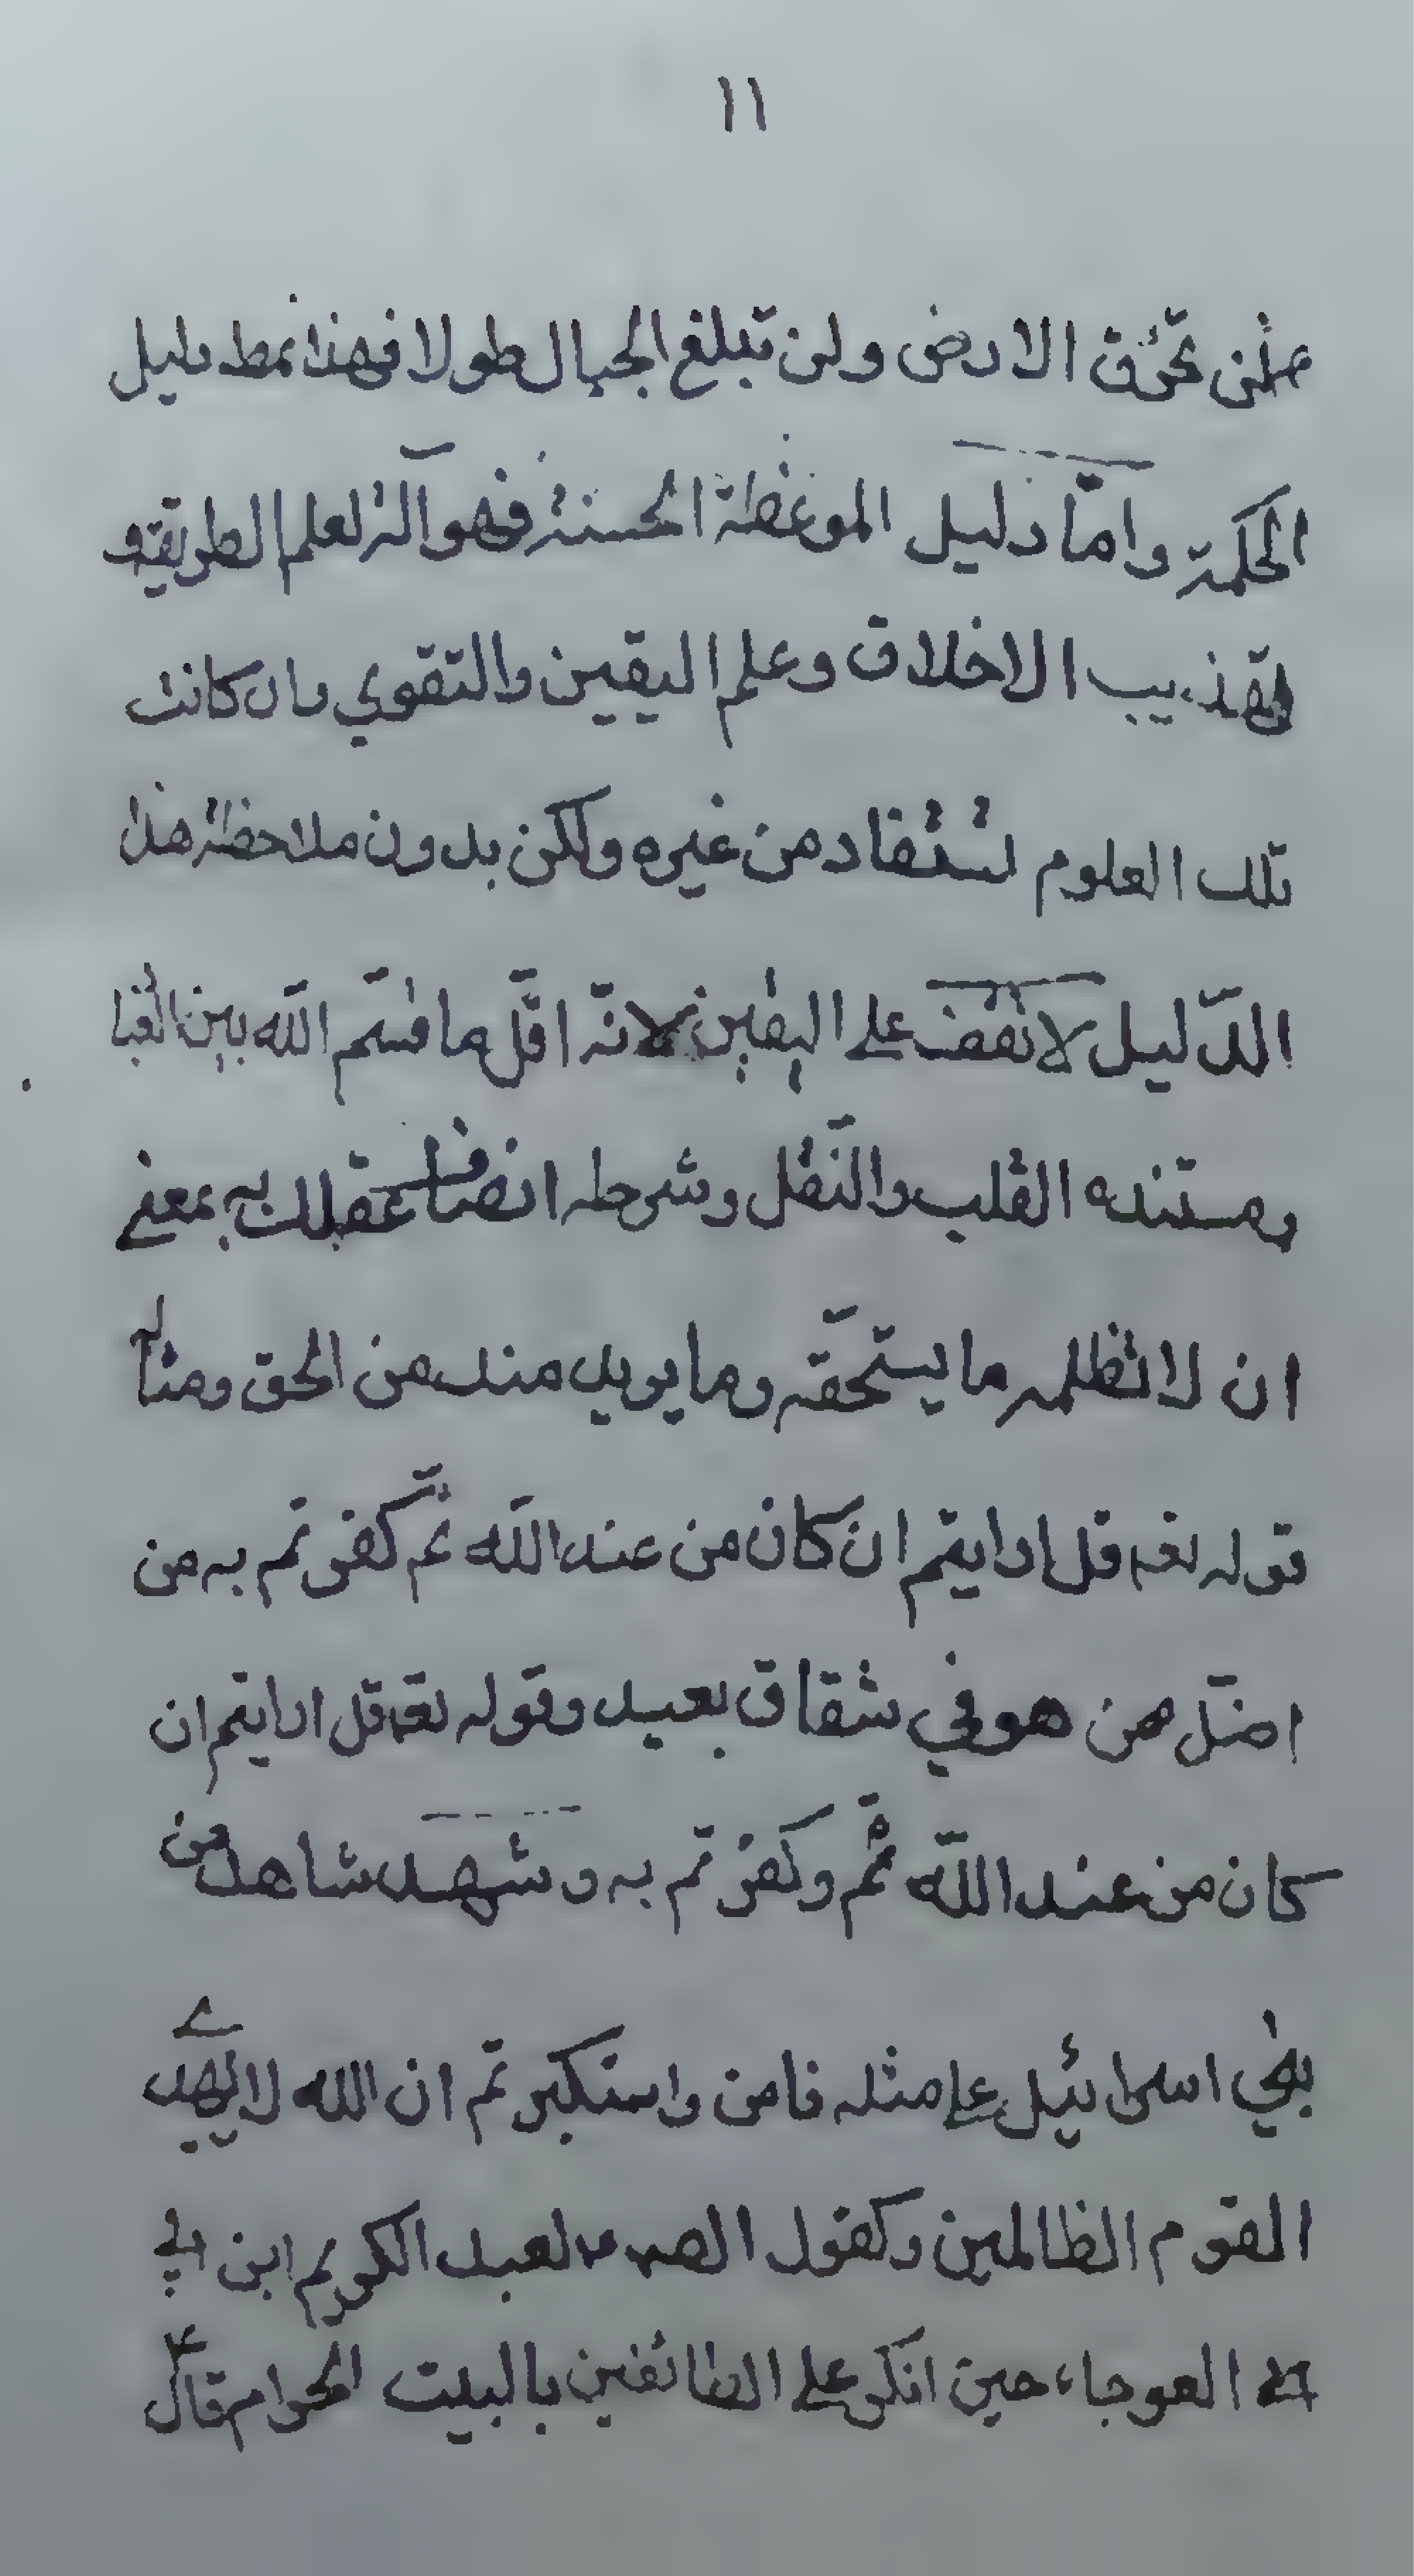 ١١
لن تخرق الارض ولن تبلغ الجبال طولا فهذا نمط دليل
الحكمة واما دليل الموعظة الحسنة فهو آلة لعلم الطريقة و
تهذيب الاخلاق وعلم اليقين والتقوي وان كانت
تلك العلوم تستفاد من غيره ولكن بدون ملاحظة هذا
الدّليل لا تقف على اليقين لانّه اقلّ ما قسّم اللّه بين العبا
ومستنده القلب والنّقل وشرطه انصاف عقلك به بمعنى
ان لا تظلمه ما يستحقّه وما يريد منك من الحق ومثاله
قوله تعه قل ارايتم ان كان من عند اللّه ثمّ كفرتم به من
اضلّ من هو في شقاق بعيد وقوله تعه قل ارايتم ان
كان من عند اللّه ثمّ وكفرتم به و شهد شاهد من
بني اسرائيل على مثله فامن واستكبرتم ان الله لا يهدي
القوم الظالمين وكقول الص لعبد الكريم ابن ابي
العوجاء حين انكر على الطائفين بالبيت الحرام قال